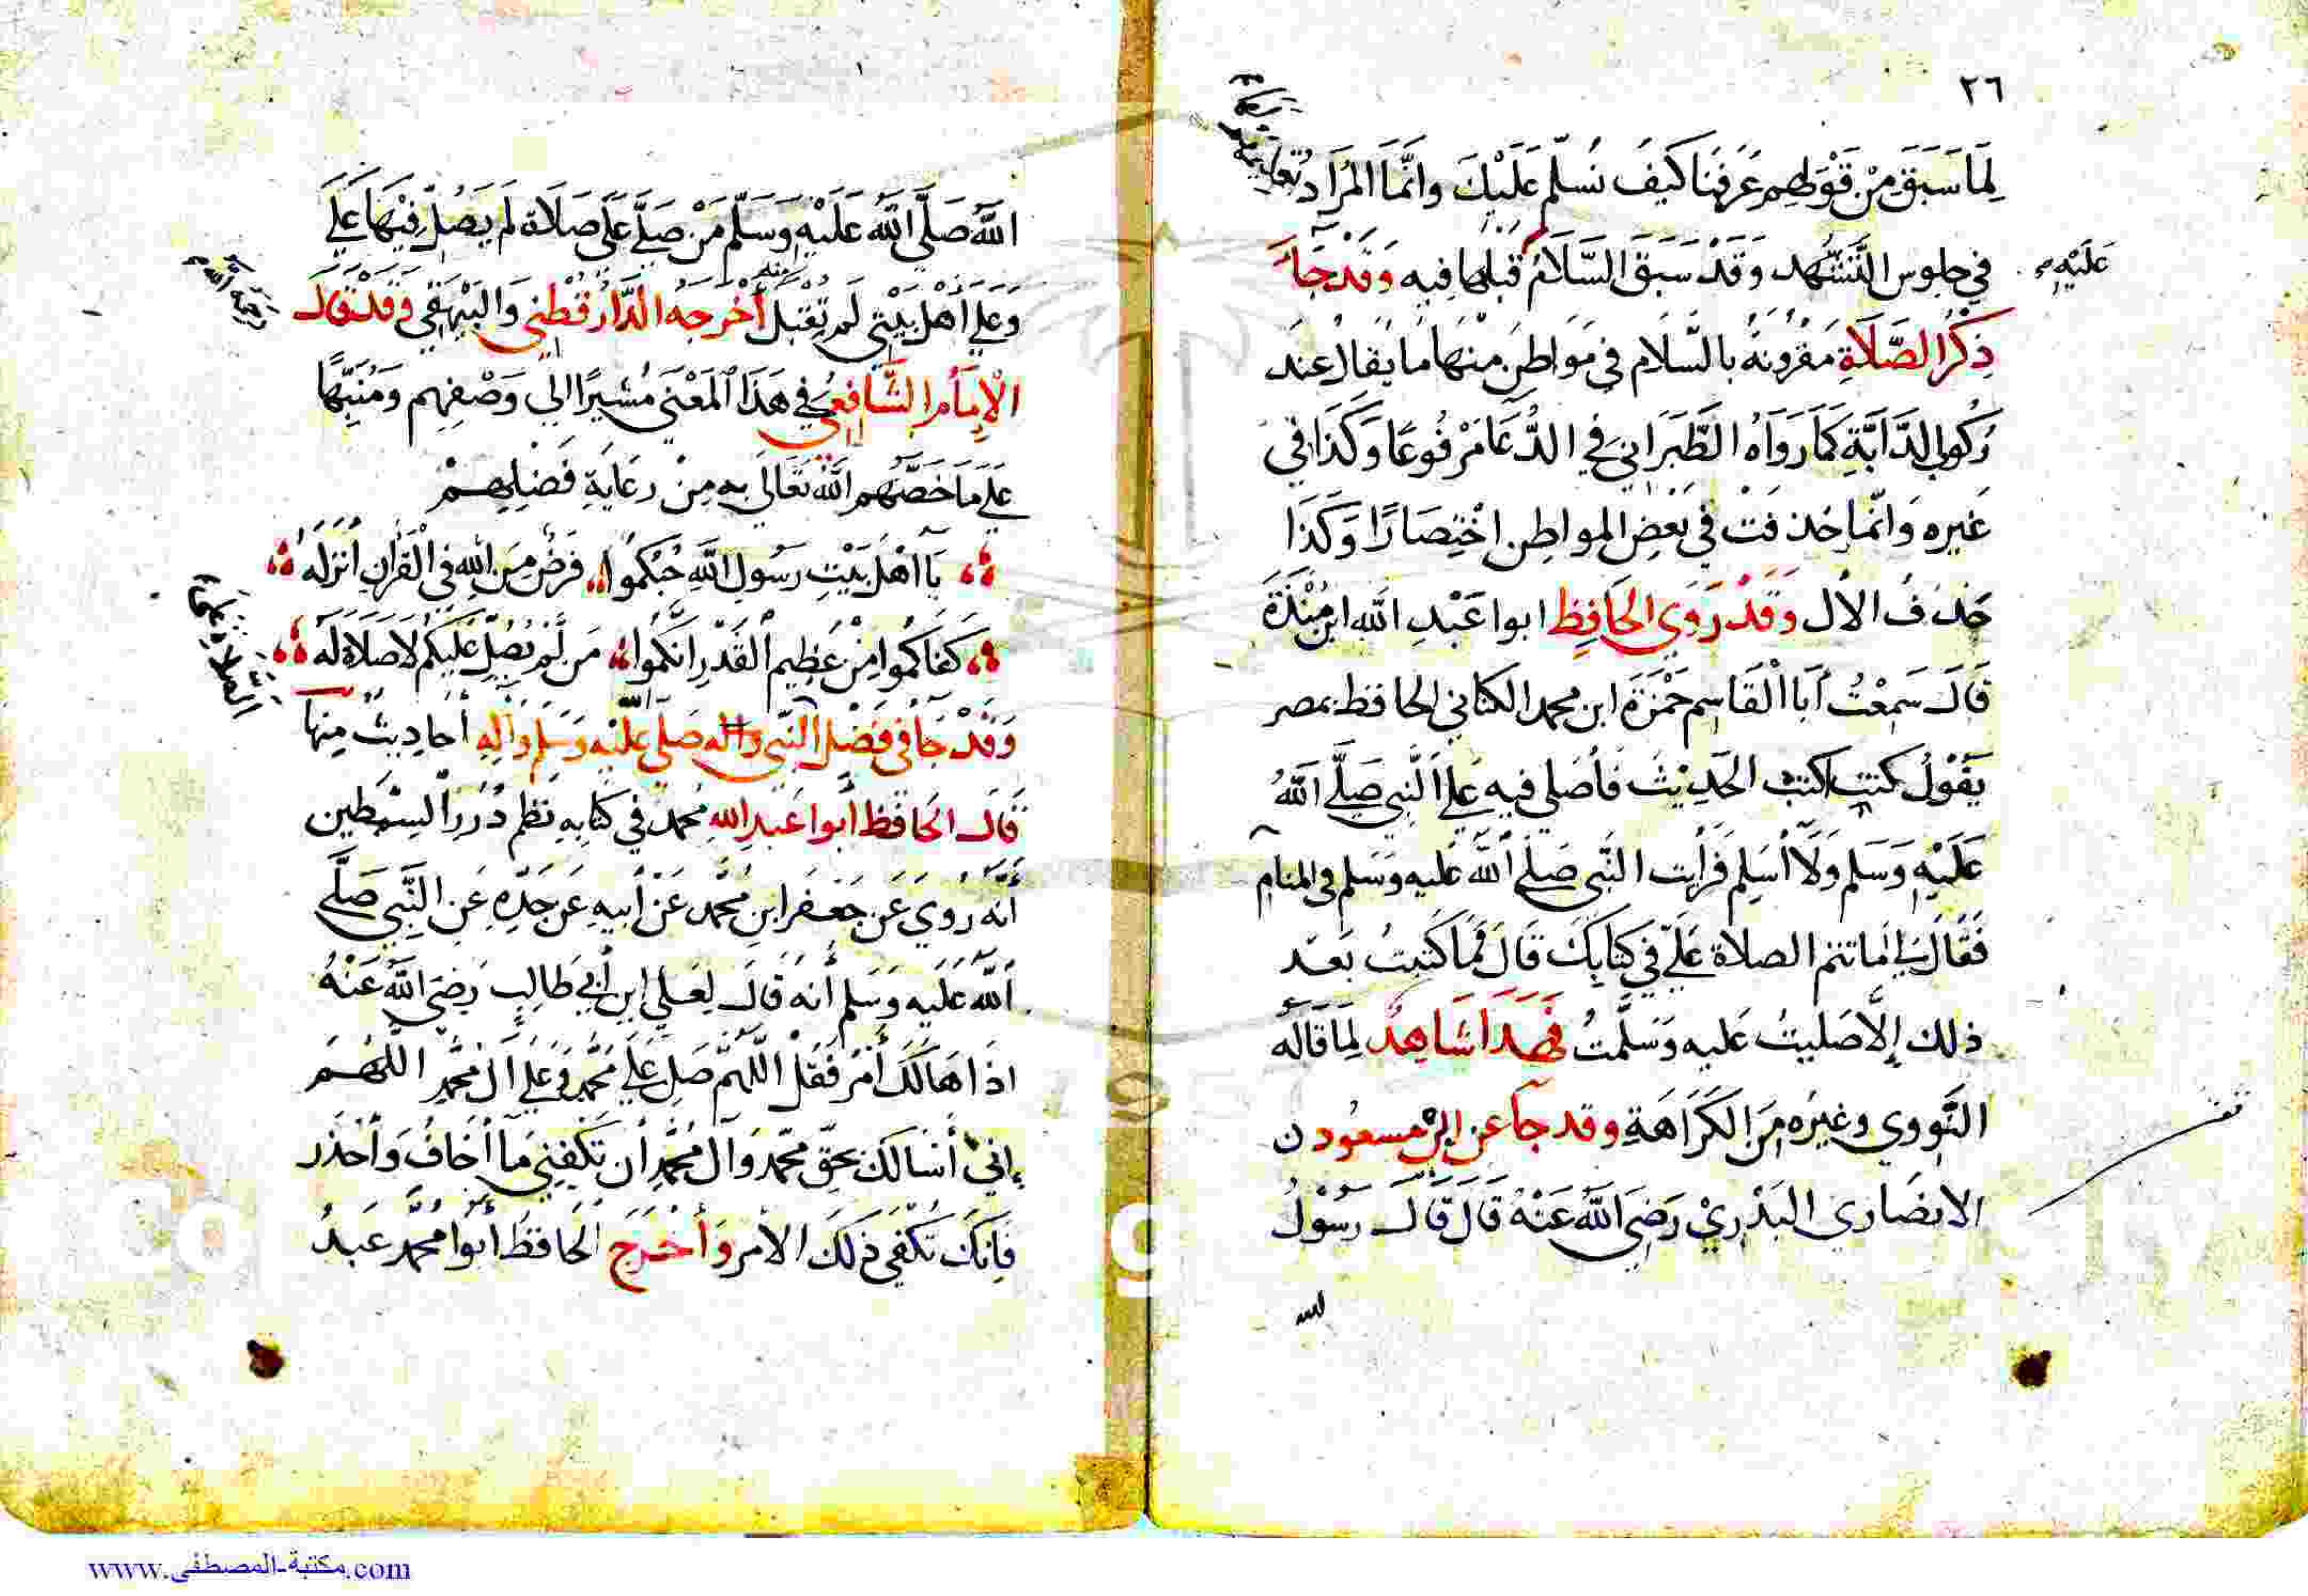 ٢٦
لِمَا سَبَقَ مِنْ قَوْلِهِم عَرَفْنَا كَيْفَ نُسَلِّم عَلَيْكَ وَانَّمَا المُرَادُ
في جلوس التَّشَهُّد وَقَدْ سَبَقَ السَّلَامُ قبلها فيه وَقَدْ جَآءَ
عَلَيْهِ
ذِكْرُ الصَّلَاةِ مَقْرُونَةً بالسَّلَام في مَوَاطِنَ مِنْهَا مَا يُقَالُ عِنْدَ
رُكُوبِ الدَّابَّةِ كَمَا رَوَاهُ الطَّبَرَانِي في الدُّعَا مَرْفُوعًا وَكَذَا في
غَيرِه وَانَّمَا حُذفَتْ في بَعْضِ المواطِن اخْتِصَارًا وَكَذَا
حَذفُ الآل وَقَدْ رَوَي الحَافِظِ ابوا عَبْدِ الله ابنُ مَنْدَةَ
قَالَ سَمِعْتُ أَبَا الْقَاسِمِ حَمْزَةَ ابن محمد الكناني الحافظ بمصر
يَقُوْلُ كنت اكتب الحَدِيْثَ فَأُصَلي فيهِ عَلَى النَّبي صَلَّى اللهُ
عَلَيْهِ وَسَلم وَلَا أُسَلِم فَرَأيت النَّبي صَلَى اللهَ عَليه وَسَلم في المنام
فَقَالَ لِي امَا تتم الصلاة عَلَيّ في كتَابِكَ قَالَ فَمَا كَتَبتُ بَعْد
ذلك إِلَّا صَليتُ عَليه وَسَلَّمتُ فَهَذَا شَاهِدٌ لِمَا قَالَهُ
النَّوَوي وغيرُه مِنَ الكَرَاهَةِ وقد جآ عن ابن مسعود ن
الانصَاري البَدْرِيْ رَضِيَ اللهُ عَنْهُ قَالَ قَالَ رَسُوْلُ
الله
اللهِ صَلَّى اللهُ عَلَيْهِ وَسَلَّم مَنْ صَلَّى عَلَيَّ صَلَاةً لَم يُصَلِّ فِيْهَا عَلَيَّ
وَعَلَى أَهْلِ بَيْتِي لَم تُقْبَل منه أَخْرَجَهُ الدَّارَقُطْنِي وَالبَيْهَقي وَقَدْ قَالَ
رحمه الله
الْإِمَامُ الشَّافِعِيُ في هَذَا الْمَعْنَى مُشِيرًا الي وَصْفِهِم وَمُنَبِّهًا
عَلَى مَا خَصَّهُم اللهُ تَعَالَى بِهِ مِنْ رِعَايَةِ فَضْلِهِمْ
يَا اهْلَ بَيْتِ رَسُولِ اللهِ حُبُّكُمُوا فَرْضٌ مِنَ اللهِ فِي الْقُرْآنِ أَنْزَلَهُ
كَفَاكُمُوا مِنْ عَظِيمِ الْقَدْرِ انَّكُمُوا مَنْ لَمْ يُصَلِّ عَلَيْكُم لَا صَلَاةَ لَهُ
وَقَدْ جَآ فِي فَضْلِ الصلاة على النَّبي واله صَلَى الله عَليْهِ وَسَلم وَآلِهِ أَحَادِيثُ مِنْهَا
قَالَ الحَافظ أَبوا عَبدِ اللهِ مُحمد في كتَابِهِ نَظم دُرَرِ السِّمْطَين
أَنَّهُ رُوِيَ عَن جَعْفَر ابنِ مُحَّمد عَنْ أَبيهِ عَن جَدِّهِ عَنِ النَّبي صَلَّى
اللهُ عَلَيه وَسَلم أَنهُ قَالَ لِعَلي ابنِ أَبي طَالِبٍ رَضيَ اللهُ عَنْهُ
اذَا هَالَكَ أَمْرٌ فَقُلْ اللَّهُمَّ صَلِ عَلَى مُحَمَّدٍ وَعَلى آل مُحَمَّدٍ اللَّهُمَّ
إِنيْ أَسْأَلكَ بحَقِّ مُحَّمد وَآل مُحَمَّدٍ أَن تَكْفِيَنِي مَا أَخَافُ وَأَحْذَرُ
فَإِنَّكَ تُكْفَى ذَلكَ الأَمر وَأَخْرَجَ الحَافظُ أَبُوا مُحَمَّد عَبدُ
www.مكتبة-المصطفى.com